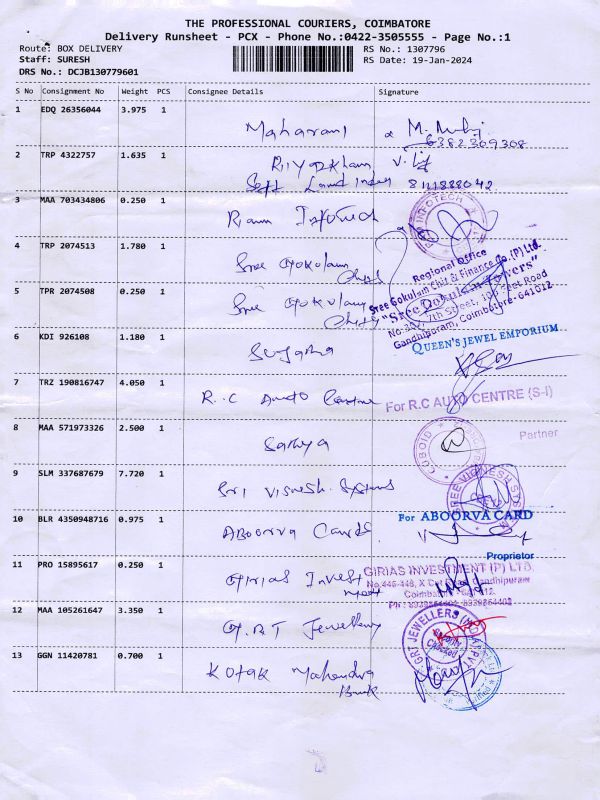 THE PROFESSIONAL COURIERS, COIMBATORE
Delivery Runsheet - PCX - Phone No.:0422-3505555 - Page No.:1
Route: BOX DELIVERY
RS No.: 1307796
Staff: SURESH
RS Date: 19-Jan-2024
DRS No.: DCJB130779601
S No Consignment No Weight PCS Consignee Details Signature
1 EDQ 26356044 3.975 1
Maharani
6382309308
2 TRP 4322757 1.635 1
Riyazkhan
Land 8111888042
3 MAA 703434806 0.250 1
Ram Infotech
INFOTECH
4 TRP 2074513 1.780 1
Sree Gokulam
Chits
Regional Office
Sree Gokulam Chit & Finance Co.(P) Ltd.
"Sree Gokulam Towers"
7th Street, 100 Feet Road
Gandhipuram, Coimbatore-641012
5 TPR 2074508 0.250 1
Sree Gokulam
Chits
6 KDI 926108 1.180 1
Suganya
QUEEN'S JEWEL EMPORIUM
7 TRZ 190816747 4.050 1
R.C Auto Centre
For R.C AUTO CENTRE (S-I)
Partner
8 MAA 571973326 2.500 1
Sathya
CUBOID
9 SLM 337687679 7.720 1
Sri Vignesh Systems
SREE VIGNESH SYSTEMS
10 BLR 4350948716 0.975 1
Aboorva Cards
For ABOORVA CARD
Proprietor
11 PRO 15895617 0.250 1
Girias Invest
ment
GIRIAS INVESTMENT (P) LTD.
No.446-448, X Cut Road, Gandhipuram
Coimbatore - 641012.
12 MAA 105261647 3.350 1
G.R.T Jewellery
GRT JEWELLERS
Security
Checked
13 GGN 11420781 0.700 1
Kotak Mahendra
Bank